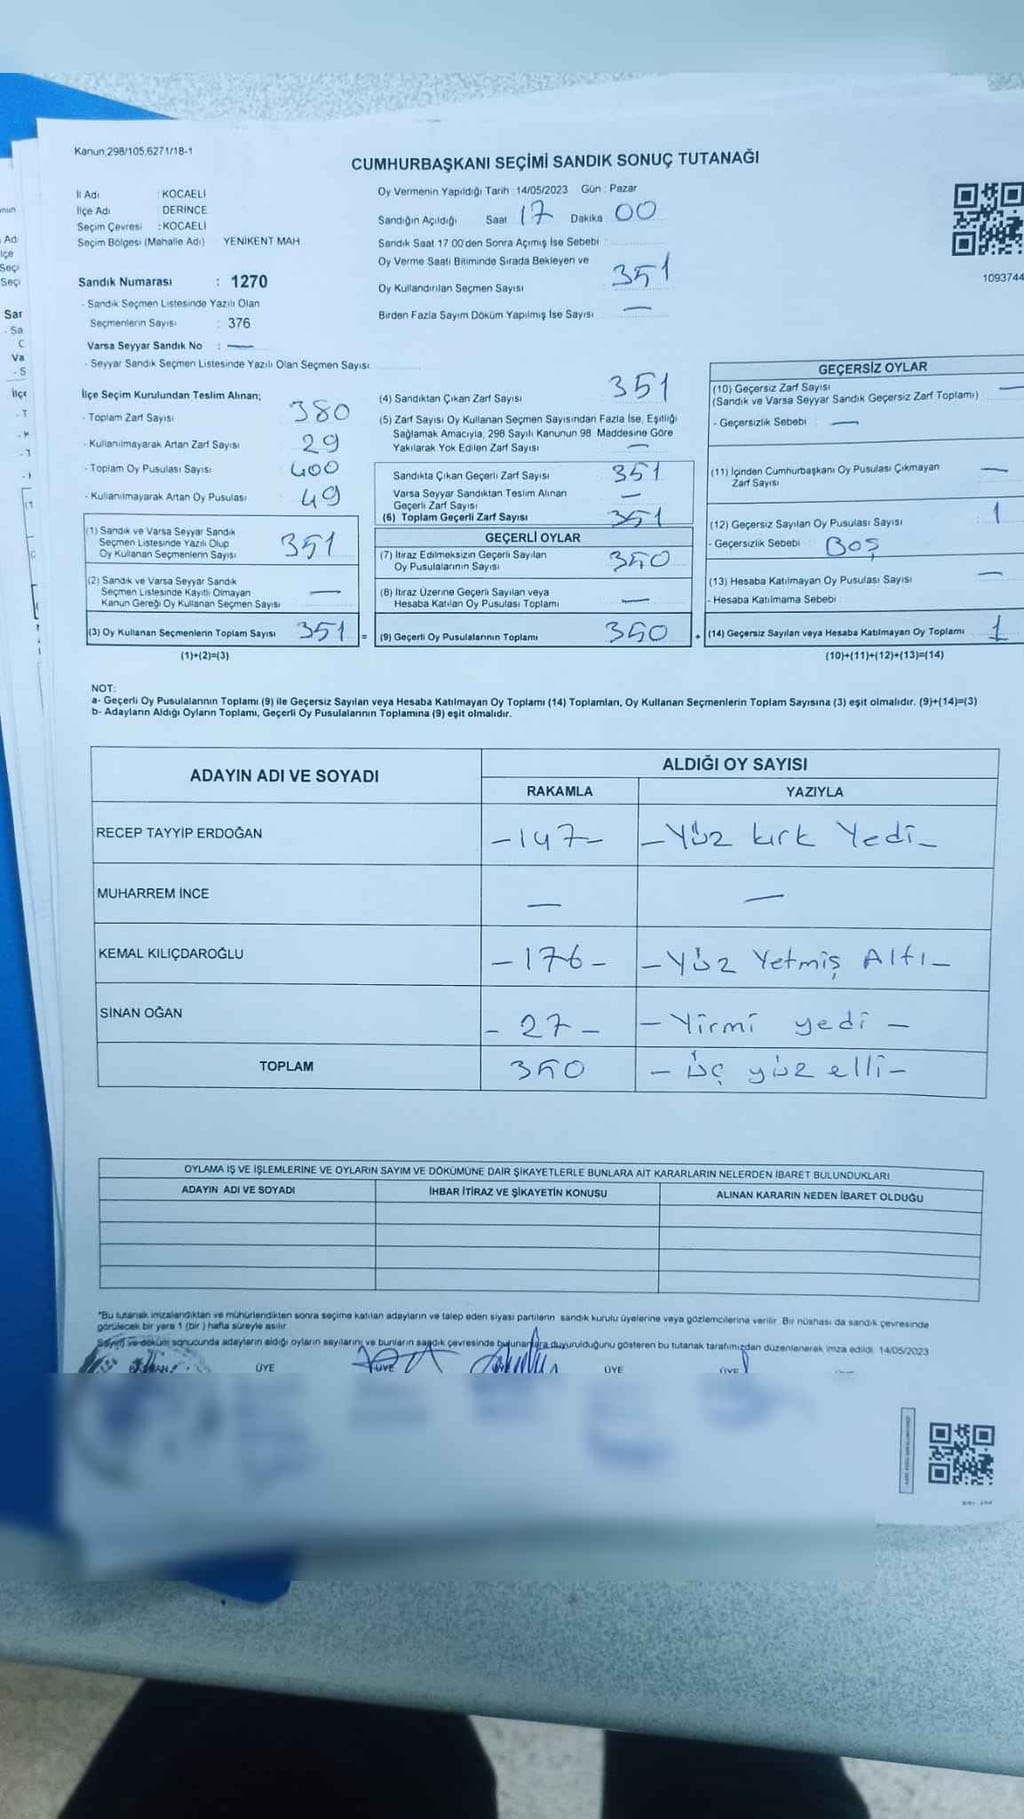 Kanun;298/105,6271/18-1
CUMHURBAŞKANI SEÇİMİ SANDIK SONUÇ TUTANAĞI
İl Adı : KOCAELİ
İlçe Adı DERİNCE
Seçim Çevresi : KOCAELİ
Seçim Bölgesi (Mahalle Adı) YENİKENT MAH.
Oy Vermenin Yapıldığı Tarih :14/05/2023 Gün : Pazar
Sandığın Açıldığı Saat 17 Dakika 00
Sandık Saat 17.00'den Sonra Açımış İse Sebebi
Oy Verme Saati Bitiminde Sırada Bekleyen ve
Oy Kullandırılan Seçmen Sayısı 351
Birden Fazla Sayım Döküm Yapılmış İse Sayısı —
1093744
Sandık Numarası : 1270
- Sandık Seçmen Listesinde Yazılı Olan
Seçmenlerin Sayısı : 376
Varsa Seyyar Sandık No : —
- Seyyar Sandık Seçmen Listesinde Yazılı Olan Seçmen Sayısı
İlçe Seçim Kurulundan Teslim Alınan;
- Toplam Zarf Sayısı 380
- Kullanılmayarak Artan Zarf Sayısı 29
- Toplam Oy Pusulası Sayısı 400
- Kullanılmayarak Artan Oy Pusulası 49
(1) Sandık ve Varsa Seyyar Sandık
Seçmen Listesinde Yazılı Olup
Oy Kullanan Seçmenlerin Sayısı 351
(2) Sandık ve Varsa Seyyar Sandık
Seçmen Listesinde Kayıtlı Olmayan
Kanun Gereği Oy Kullanan Seçmen Sayısı —
(3) Oy Kullanan Seçmenlerin Toplam Sayısı 351 =
(1)+(2)=(3)
(4) Sandıktan Çıkan Zarf Sayısı 351
(5) Zarf Sayısı Oy Kullanan Seçmen Sayısından Fazla İse, Eşitliği
Sağlamak Amacıyla, 298 Sayılı Kanunun 98. Maddesine Göre
Yakılarak Yok Edilen Zarf Sayısı —
Sandıkta Çıkan Geçerli Zarf Sayısı 351
Varsa Seyyar Sandıktan Teslim Alınan
Geçerli Zarf Sayısı —
(6) Toplam Geçerli Zarf Sayısı 351
GEÇERLİ OYLAR
(7) İtiraz Edilmeksizin Geçerli Sayılan
Oy Pusulalarının Sayısı 350
(8) İtiraz Üzerine Geçerli Sayılan veya
Hesaba Katılan Oy Pusulası Toplamı —
(9) Geçerli Oy Pusulalarının Toplamı 350 +
GEÇERSİZ OYLAR
(10) Geçersiz Zarf Sayısı —
(Sandık ve Varsa Seyyar Sandık Geçersiz Zarf Toplamı)
- Geçersizlik Sebebi : —
(11) İçinden Cumhurbaşkanı Oy Pusulası Çıkmayan
Zarf Sayısı —
(12) Geçersiz Sayılan Oy Pusulası Sayısı 1
- Geçersizlik Sebebi : Boş
(13) Hesaba Katılmayan Oy Pusulası Sayısı —
- Hesaba Katılmama Sebebi
(14) Geçersiz Sayılan veya Hesaba Katılmayan Oy Toplamı 1
(10)+(11)+(12)+(13)=(14)
NOT:
a- Geçerli Oy Pusulalarının Toplamı (9) ile Geçersiz Sayılan veya Hesaba Katılmayan Oy Toplamı (14) Toplamları, Oy Kullanan Seçmenlerin Toplam Sayısına (3) eşit olmalıdır. (9)+(14)=(3)
b- Adayların Aldığı Oyların Toplamı, Geçerli Oy Pusulalarının Toplamına (9) eşit olmalıdır.
ADAYIN ADI VE SOYADI ALDIĞI OY SAYISI
RAKAMLA YAZIYLA
RECEP TAYYİP ERDOĞAN -147- -Yüz kırk Yedi-
MUHARREM İNCE — —
KEMAL KILIÇDAROĞLU -176- -Yüz Yetmiş Altı-
SİNAN OĞAN -27- -Yirmi yedi-
TOPLAM 350 -üç yüz elli-
OYLAMA İŞ VE İŞLEMLERİNE VE OYLARIN SAYIM VE DÖKÜMÜNE DAİR ŞİKAYETLERLE BUNLARA AİT KARARLARIN NELERDEN İBARET BULUNDUKLARI
ADAYIN ADI VE SOYADI İHBAR İTİRAZ VE ŞİKAYETİN KONUSU ALINAN KARARIN NEDEN İBARET OLDUĞU
"Bu tutanak imzalandıktan ve mühürlendikten sonra seçime katılan adayların ve talep eden siyasi partilerin sandık kurulu üyelerine veya gözlemcilerine verilir. Bir nüshası da sandık çevresinde
görülecek bir yere 1 (bir ) hafta süreyle asılır.
Sayım ve döküm sonucunda adayların aldığı oyların sayılarını ve bunların sandık çevresinde bulunanlara duyurulduğunu gösteren bu tutanak tarafımızdan düzenlenerek imza edildi. 14/05/2023
BAŞKAN ÜYE ÜYE ÜYE ÜYE